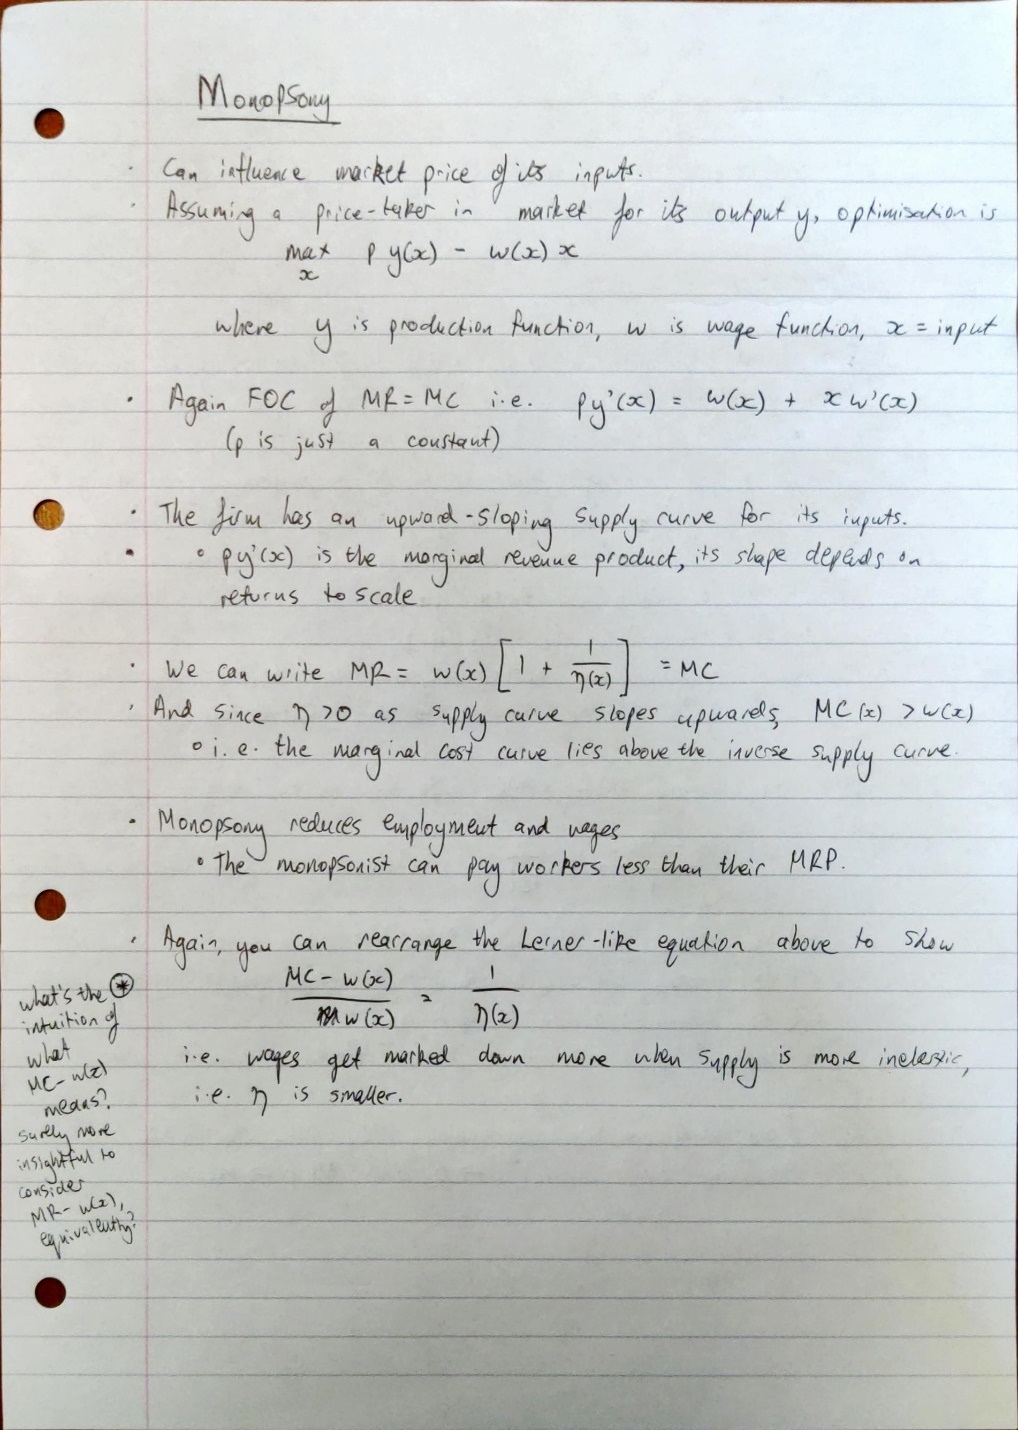 Monopsony
· Can influence market price of its inputs.
· Assuming a price-taker in market for its output y, optimisation is
max p y(x) - w(x) x
x
where y is production function, w is wage function, x = input
· Again FOC of MR = MC i.e. py'(x) = w(x) + x w'(x)
(p is just a constant)
· The firm has an upward-sloping supply curve for its inputs.
· ∘ py'(x) is the marginal revenue product, its shape depends on
returns to scale
· We can write MR = w(x) [1 + 1/η(x)] = MC
· And since η > 0 as supply curve slopes upwards, MC(x) > w(x)
∘ i.e. the marginal cost curve lies above the inverse supply curve.
· Monopsony reduces employment and wages
∘ The monopsonist can pay workers less than their MRP.
· Again, you can rearrange the Lerner-like equation above to show
(MC - w(x))/w(x) = 1/η(x)
i.e. wages get marked down more when supply is more inelastic,
i.e. η is smaller.
what's the ⊛
intuition of
what
MC - w(x)
means?
surely more
insightful to
consider
MR - w(x),
equivalently?